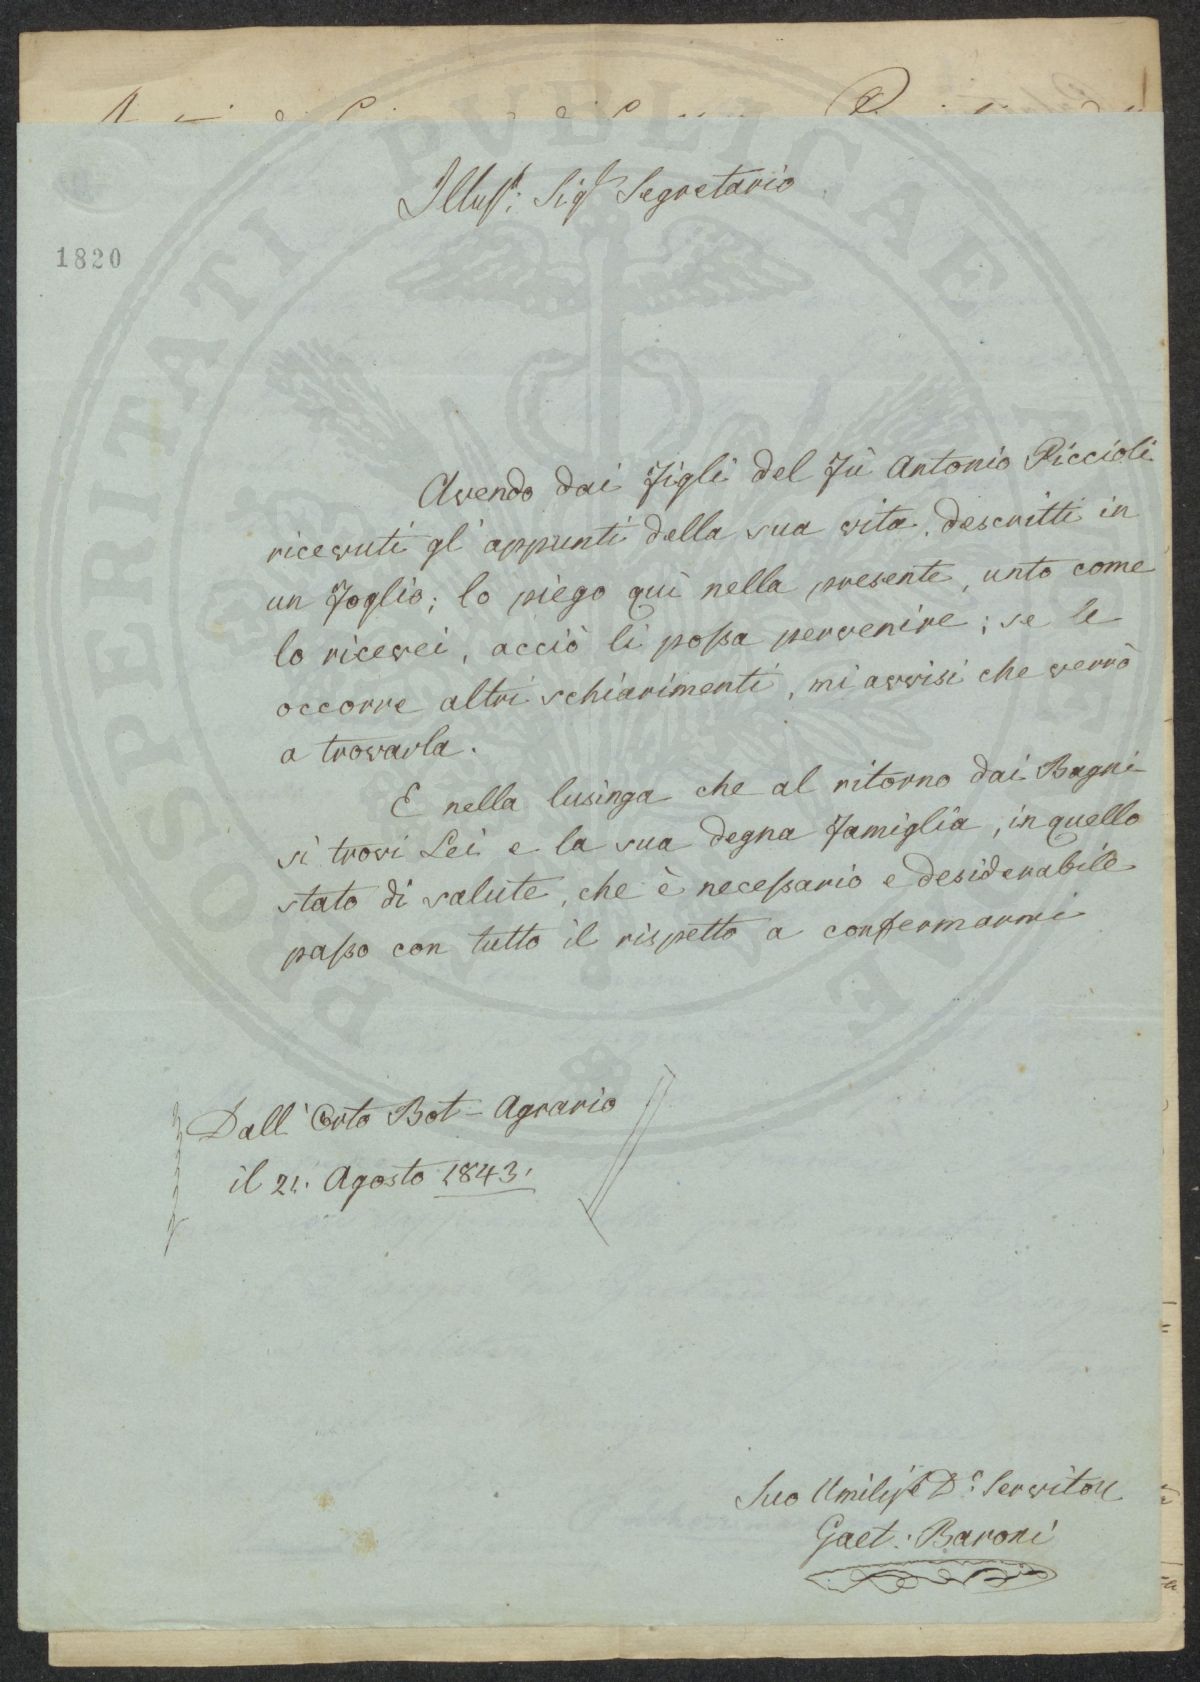 Illuss: Sigr Segretario
1820
Avendo dai Figli del Fù Antonio Piccioli
ricevuti gl' appunti della sua vita, descritti in
un Foglio; lo piego quì nella presente, unto come
lo ricevei, acciò li possa pervenire; se le
occorre altri schiarimenti, mi avvisi che verrò
a trovarla.
E nella lusinga che al ritorno dai Bagni
si trovi Lei e la sua degna Famiglia, in quello
stato di salute, che è necessario e desiderabile
passo con tutto il rispetto a confermarmi
Dall' Orto Bot-Agrario
il 21. Agosto 1843.
Suo Umiliss Do Servitore
Gaet: Baroni
PROSPERITATI PUBLICAE